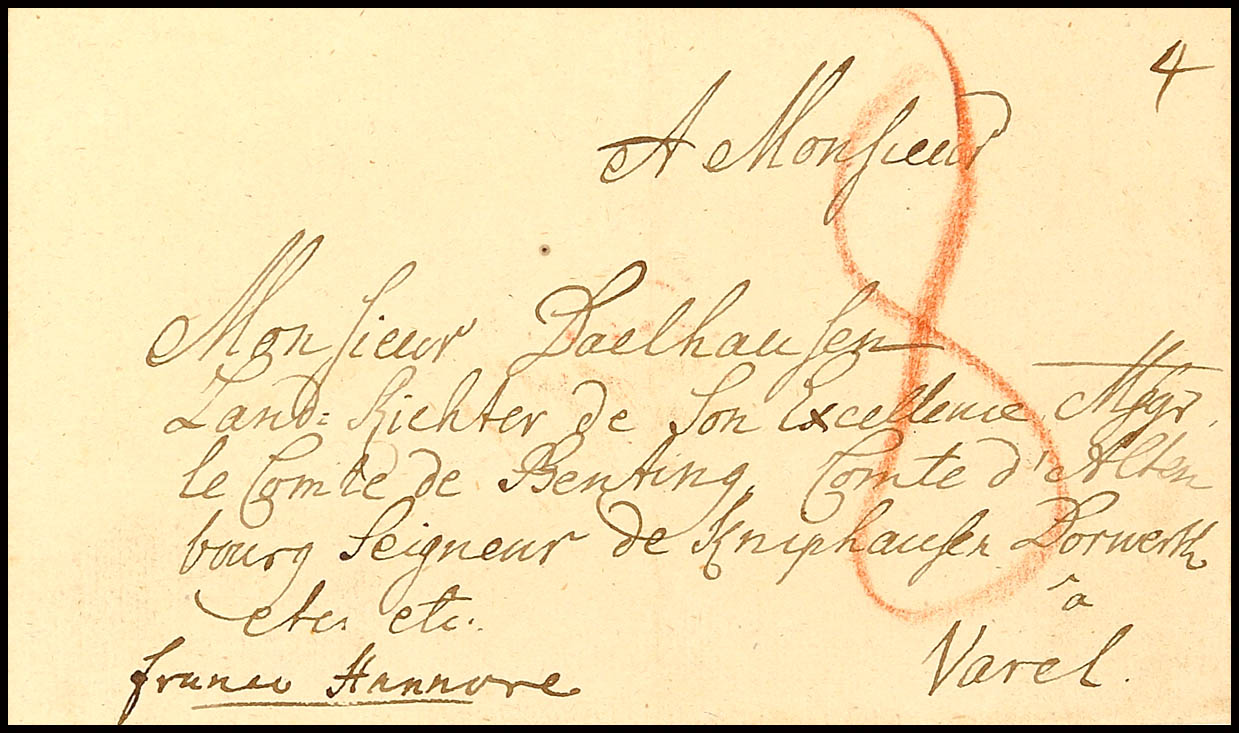 4
A Monsieur
8
Monsieur Daelhausen
Land: Richter de Son Excellence Msgr.
le Comte de Benting, Comte d'Alten
bourg Seigneur de Kniphausen Dorwerth
etc. etc.
à
franco Hannovre
Varel.